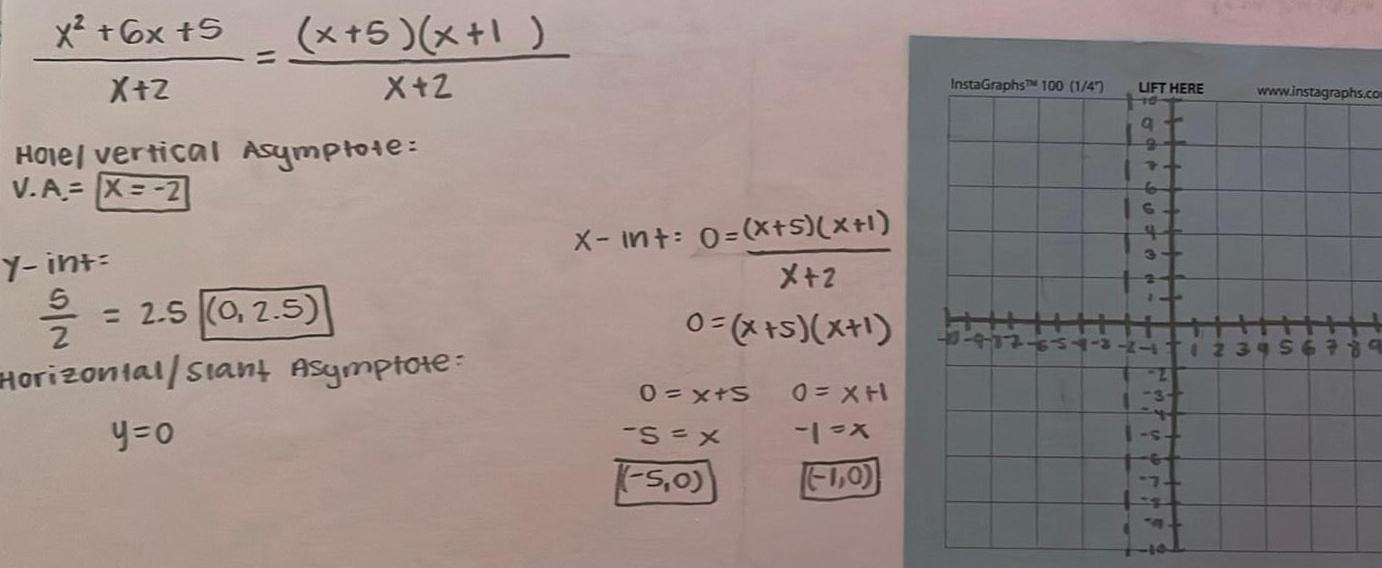 x² + 6x + 5 / x+2 = (x+5)(x+1 ) / x+2
Hole/vertical Asymptote:
V.A.= x = -2
y-int:
5/2 = 2.5 (0, 2.5)
Horizontal/Slant Asymptote:
y=0
x-int: 0=(x+5)(x+1) / x+2
0=(x+5)(x+1)
0=x+5 0=x+1
-5=x -1=x
(-5,0) (-1,0)
InstaGraphs™ 100 (1/4") LIFT HERE www.instagraphs.co
10
9
8
7
6
5
4
3
2
1
-10 -9 -8 -7 -6 -5 -4 -3 -2 -1 1 2 3 4 5 6 7 8 9
-2
-3
-4
-5
-6
-7
-8
-9
-10